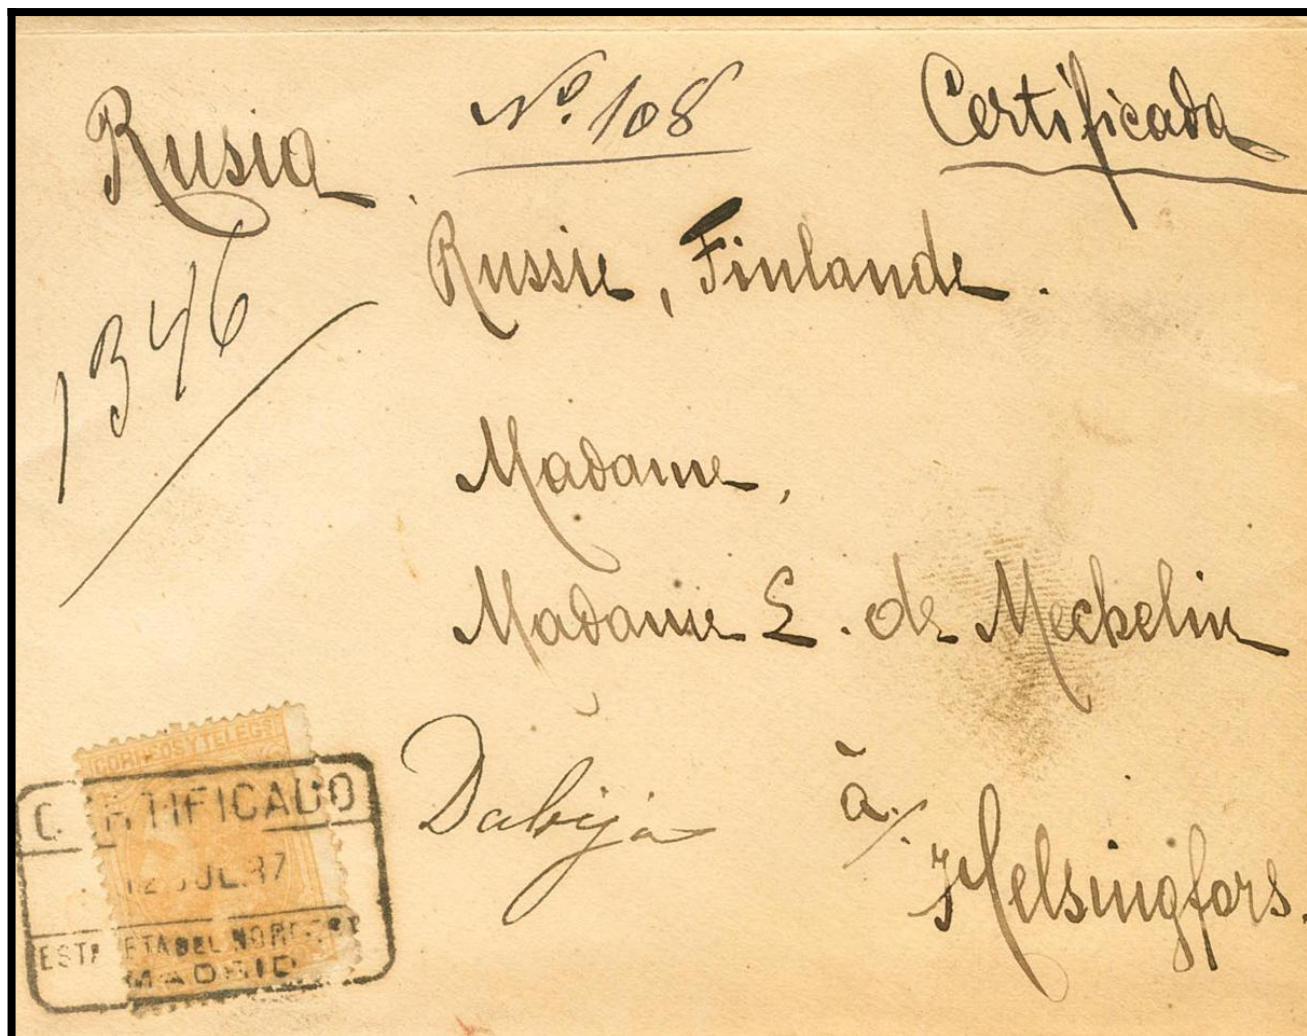 Rusia
Nº. 108
Certificada
1346
Russie, Finlande.
Madame,
Madame E. de Mechelin
Dabija
à
Helsingfors.
CORREOS Y TELEGS
CERTIFICADO
12 JUL. 87
MADRID